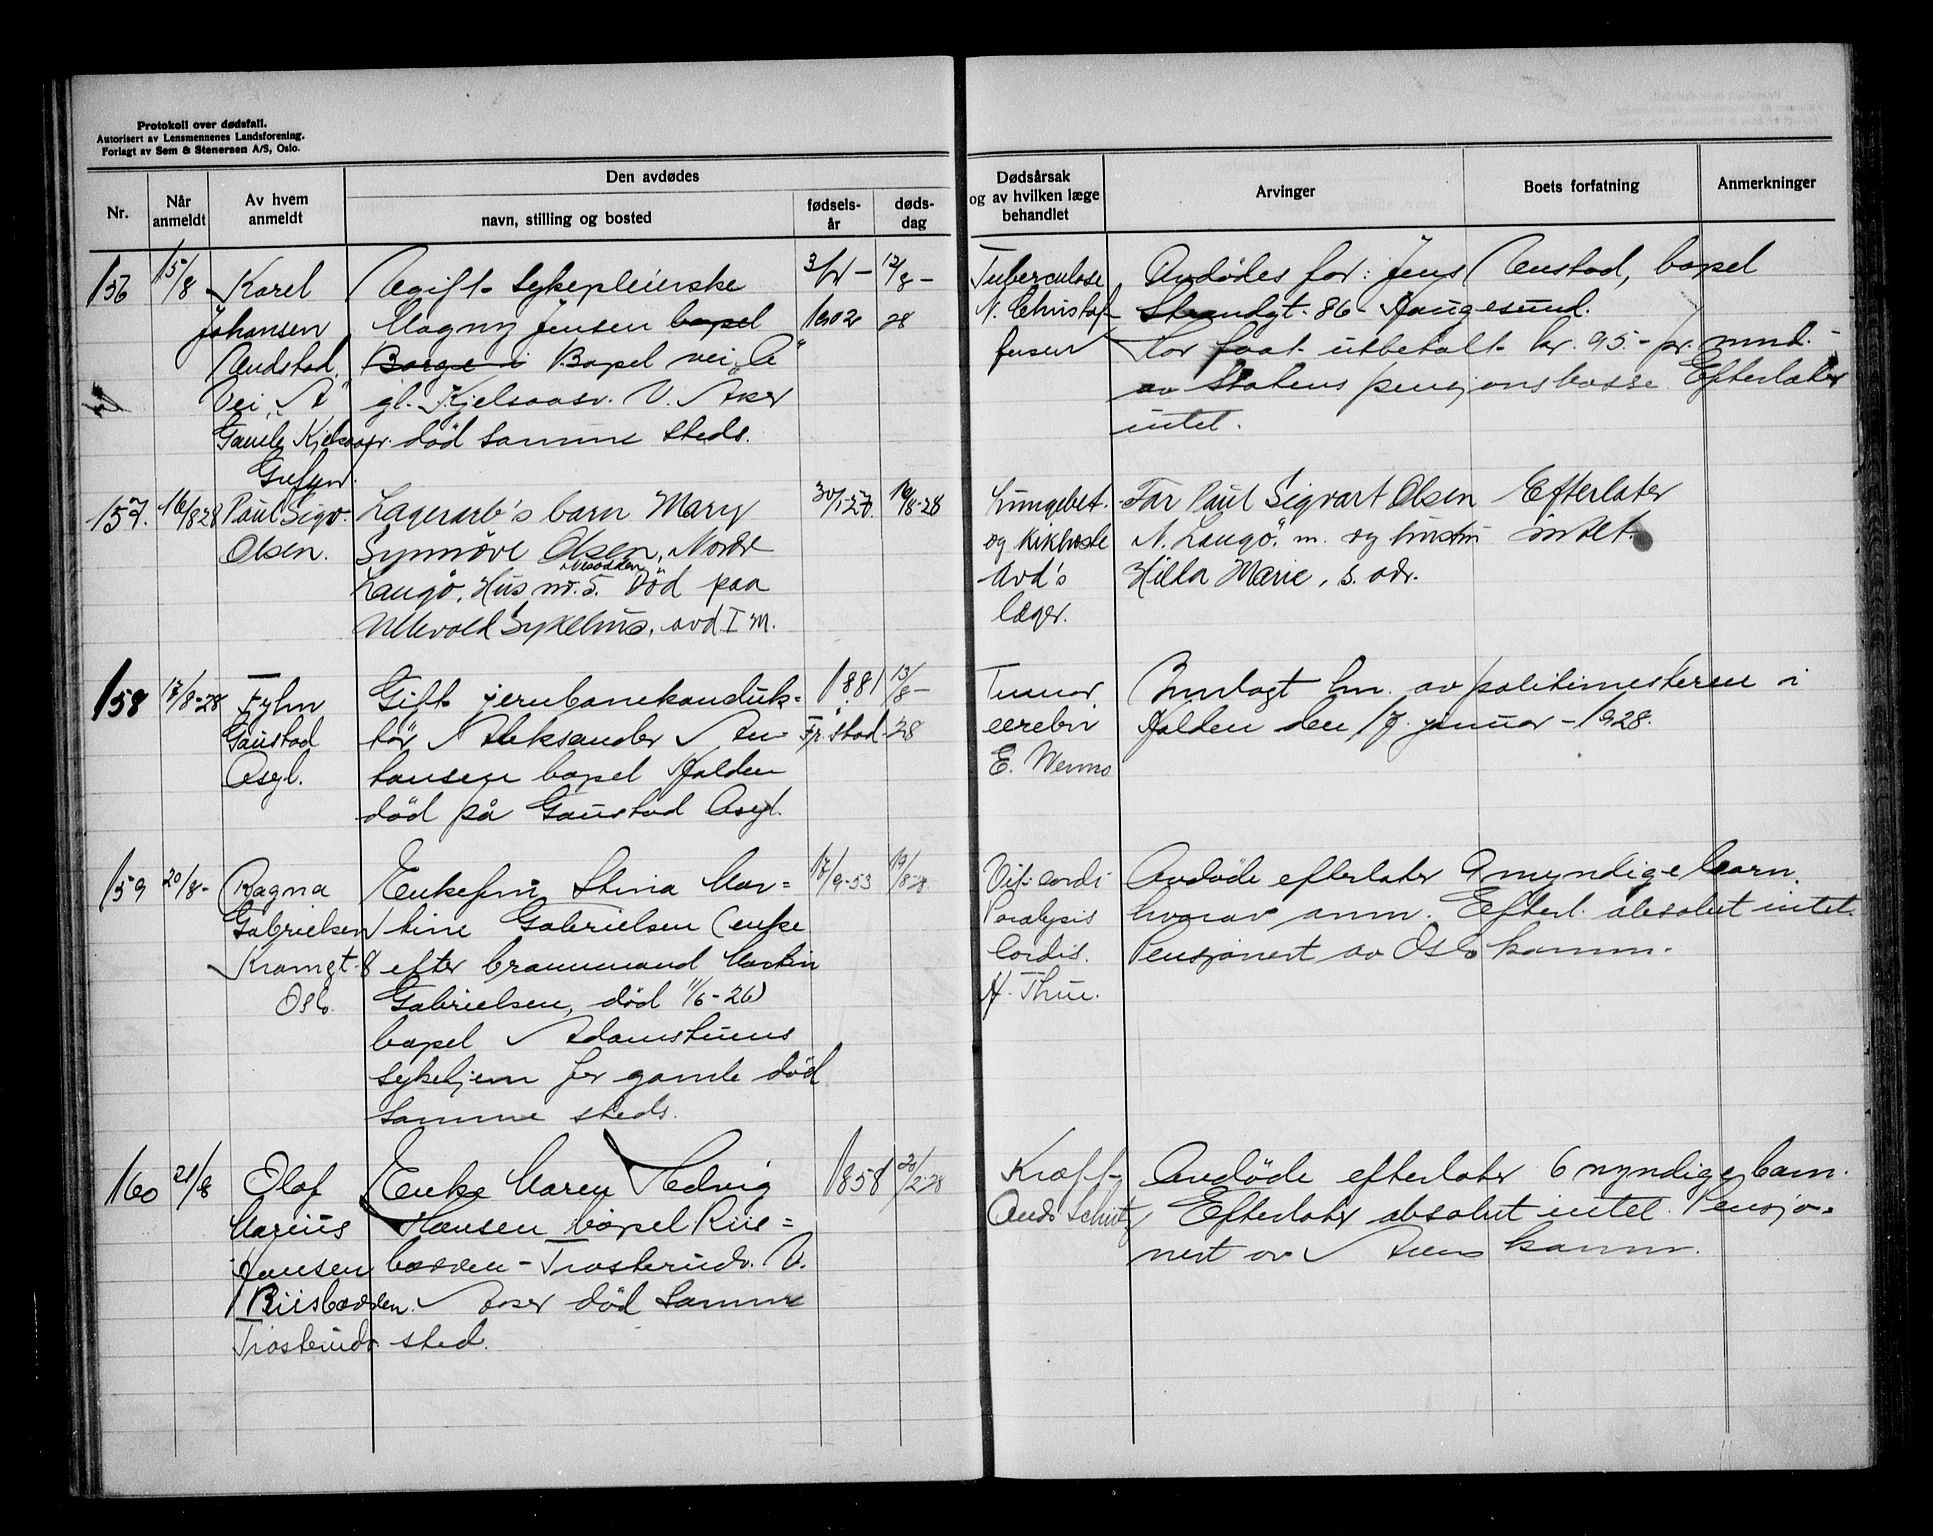 Protokoll over dødsfall.
Autorisert av Lensmennenes Landsforening.
Forlagt av Sem & Stenersen A/S, Oslo.
Nr.
Når anmeldt
Av hvem anmeldt
Den avdødes
navn, stilling og bosted
fødsels-år
døds-dag
Dødsårsak og av hvilken læge behandlet
Arvinger
Boets forfatning
Anmerkninger
156
15/8
Karel
Johansen
Vei, A
Gamle Kjelsaasv.
Grefsen.
Ugift sykepleierske
Magny Jensen bopel
Borge i Bopel vei, A
gl. Kjelsaasv. V. Aker
død samme steds.
1902
12/8 -
28
Tuberculose
N. Christof-
fersen
Avdødes far: Jens Anstad, bopel
Strandgt. 86 Haugesund.
Har faat utbetalt kr. 95.- pr. mnd.
av Statens pensjonskasse. Efterlater
intet.
157.
16/8 28
Paul Sigv.
Olsen.
Lagerarb's barn Mary
Synnøve Olsen, Nordre
Langø, Hus nr. 5. Død paa
Nesodden
Ullevold Sykehus, avd. I M.
30/1-27.
16/8-28
Lungebet.
og kikhoste
Avd's
læger.
Far Paul Sigvart Olsen
N. Langø, m. og hustru
Hilda Marie, s. adr.
Efterlater
intet.
158
17/8-28
Fylm
Gaustad
Asyl.
Gift jernbanekonduk-
tør Aleksander
bopel Halden
død på Gaustad Asyl.
1881
Fr.stad
13/8 -
28
Tumor
cerebri
E. Wenno
Innlagt hit av politimesteren i
Halden den 17 januar - 1928.
159
20/8 -
Ragna
Gabrielsen
Kromgt. 8
Oslo.
Enkefru Stina Mar-
tine Gabrielsen (enke
efter brannmand Martin
Gabrielsen, død 11/6-26)
bopel Adamstuens
sykehjem for gamle død
samme steds.
17/9-53
19/8-28
Vit. cordis
Paralysis
Cordis.
H. Thue.
Avdøde efterlater 9 myndige barn.
hvorav anm. Efterl. absolut intet.
Pensjonert av Oslo komm.
160
21/8
Olaf
Marius
Hansen
Riisbakken.
Trosterudv.
Enke Maren Hedvig
Hansen bopel Riis-
bakken - Trosterudv. V.
Aker død samme
sted.
1858
20/2-28
Kræft
Andr. Schutz
Avdøde efterlater 6 myndige barn.
Efterlater absolut intet. Pensjo-
nert av Akers komm.